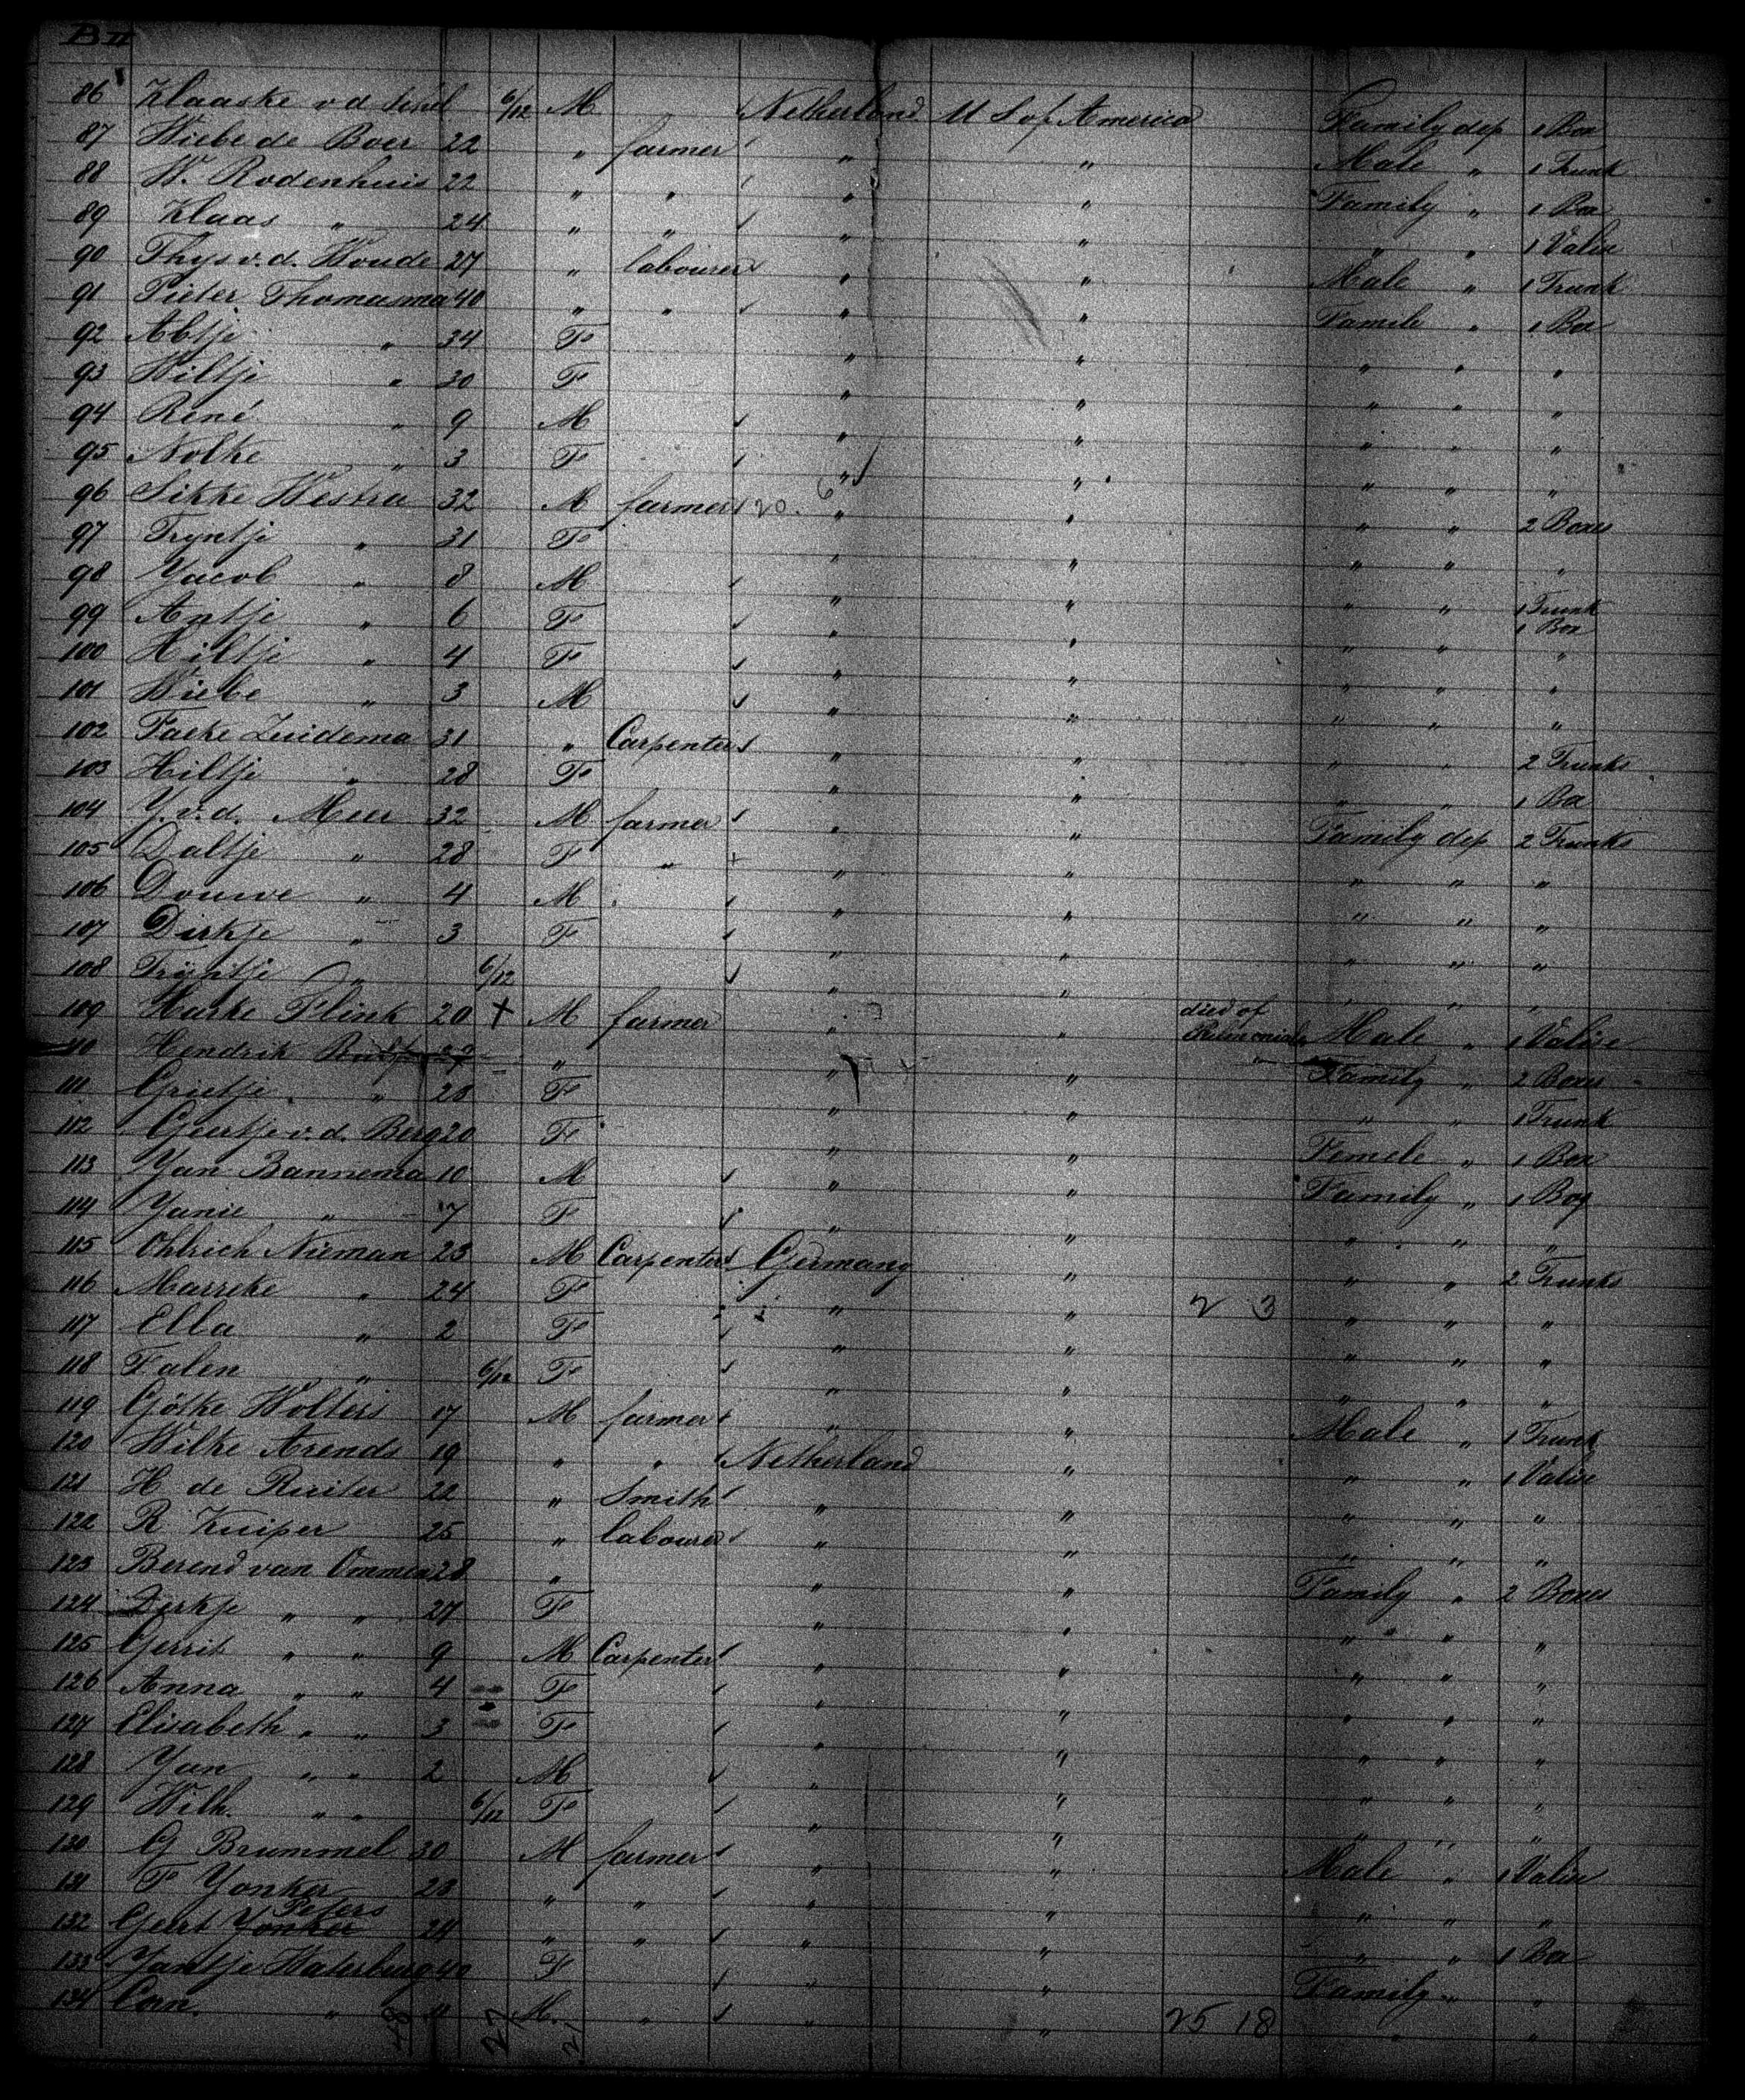 B II
86 Klaaske v d 6/12 M Netherland U S of America Family dep 1 Box
87 Wiebe de Boer 22 " farmer " " Male " 1 Trunk
88 W. Rodenhuis 22 " " " " Family " 1 Box
89 Klaas " 24 " " " " " " 1 Valise
90 Thys v. d. Woude 27 " labourer " " Male " 1 Trunk
91 Pieter Thomasma 40 " " " " Famile " 1 Box
92 Abtje " 34 F " " " " "
93 Wiltje " 30 F " " " " "
94 René " 9 M " " " " "
95 Nolke " 3 F " " " " "
96 Sikke Westra 32 M farmer 20. 6 " " " " 2 Boxes
97 Tryntje " 31 F " " " " "
98 Yacob " 8 M " " " " 1 Trunk
1 Box
99 Antje " 6 F " " " " "
100 Hiltje " 4 F " " " " "
101 Wiebe " 3 M " " " " "
102 Facke Zuidema 31 " Carpenter " " " " 2 Trunks
103 Hiltje " 28 F " " " " 1 Box
104 Y. v. d. Meer 32 M farmer " " Family dep 2 Trunks
105 Daltje " 28 F " " " " " "
106 Douwe " 4 M " " " " "
107 Dirkje " 3 F " " " " "
108 Tryntje " 6/12 " " " " "
109 Harke Flink 20 + M farmer " " died of Pneumonia Male " 1 Valise
110 Hendrik " " " " Family " 2 Boxes
111 Grietje " 28 F " " " " 1 Trunk
112 Geertje v. d. Berg 20 F " " Femele " 1 Box
113 Yan Bannema 10 M " " Family " 1 Box
114 Yanie " 7 F " " " " "
115 Ohlrich Nieman 23 M Carpenter Germany " " " 2 Trunks
116 Marreke " 24 F " " 2 3 " " "
117 Ella " 2 F " " " " "
118 Falen " 6/12 F " " " " "
119 Götke Wolters 17 M farmer " " Male " 1 Trunk
120 Wilke Arends 19 " " Netherland " " " 1 Valise
121 H de Ruiter 22 " Smith " " " " "
122 R Kuiper 25 " labourer " " " " "
123 Berend van Ommen 28 " " " Family " 2 Boxes
124 Dirkje " " 27 F " " " " "
125 Gerrit " " 9 M Carpenter " " " " "
126 Anna " " 4 F " " " " "
127 Elisabeth " " 3 F " " " " "
128 Yan " " 2 M " " " " "
129 Wilh. " " 6/12 F " " " " "
130 G Brummel 30 M farmer " " Male " 1 Valise
131 F Yonker 23 " " " " " " "
Peters
132 Geert Yonker 24 " " " " " " 1 Box
133 Yantje Waterberg 40 F " " Family " "
134 Con. " 11 M. " " " 25 18 " "
48 27 21